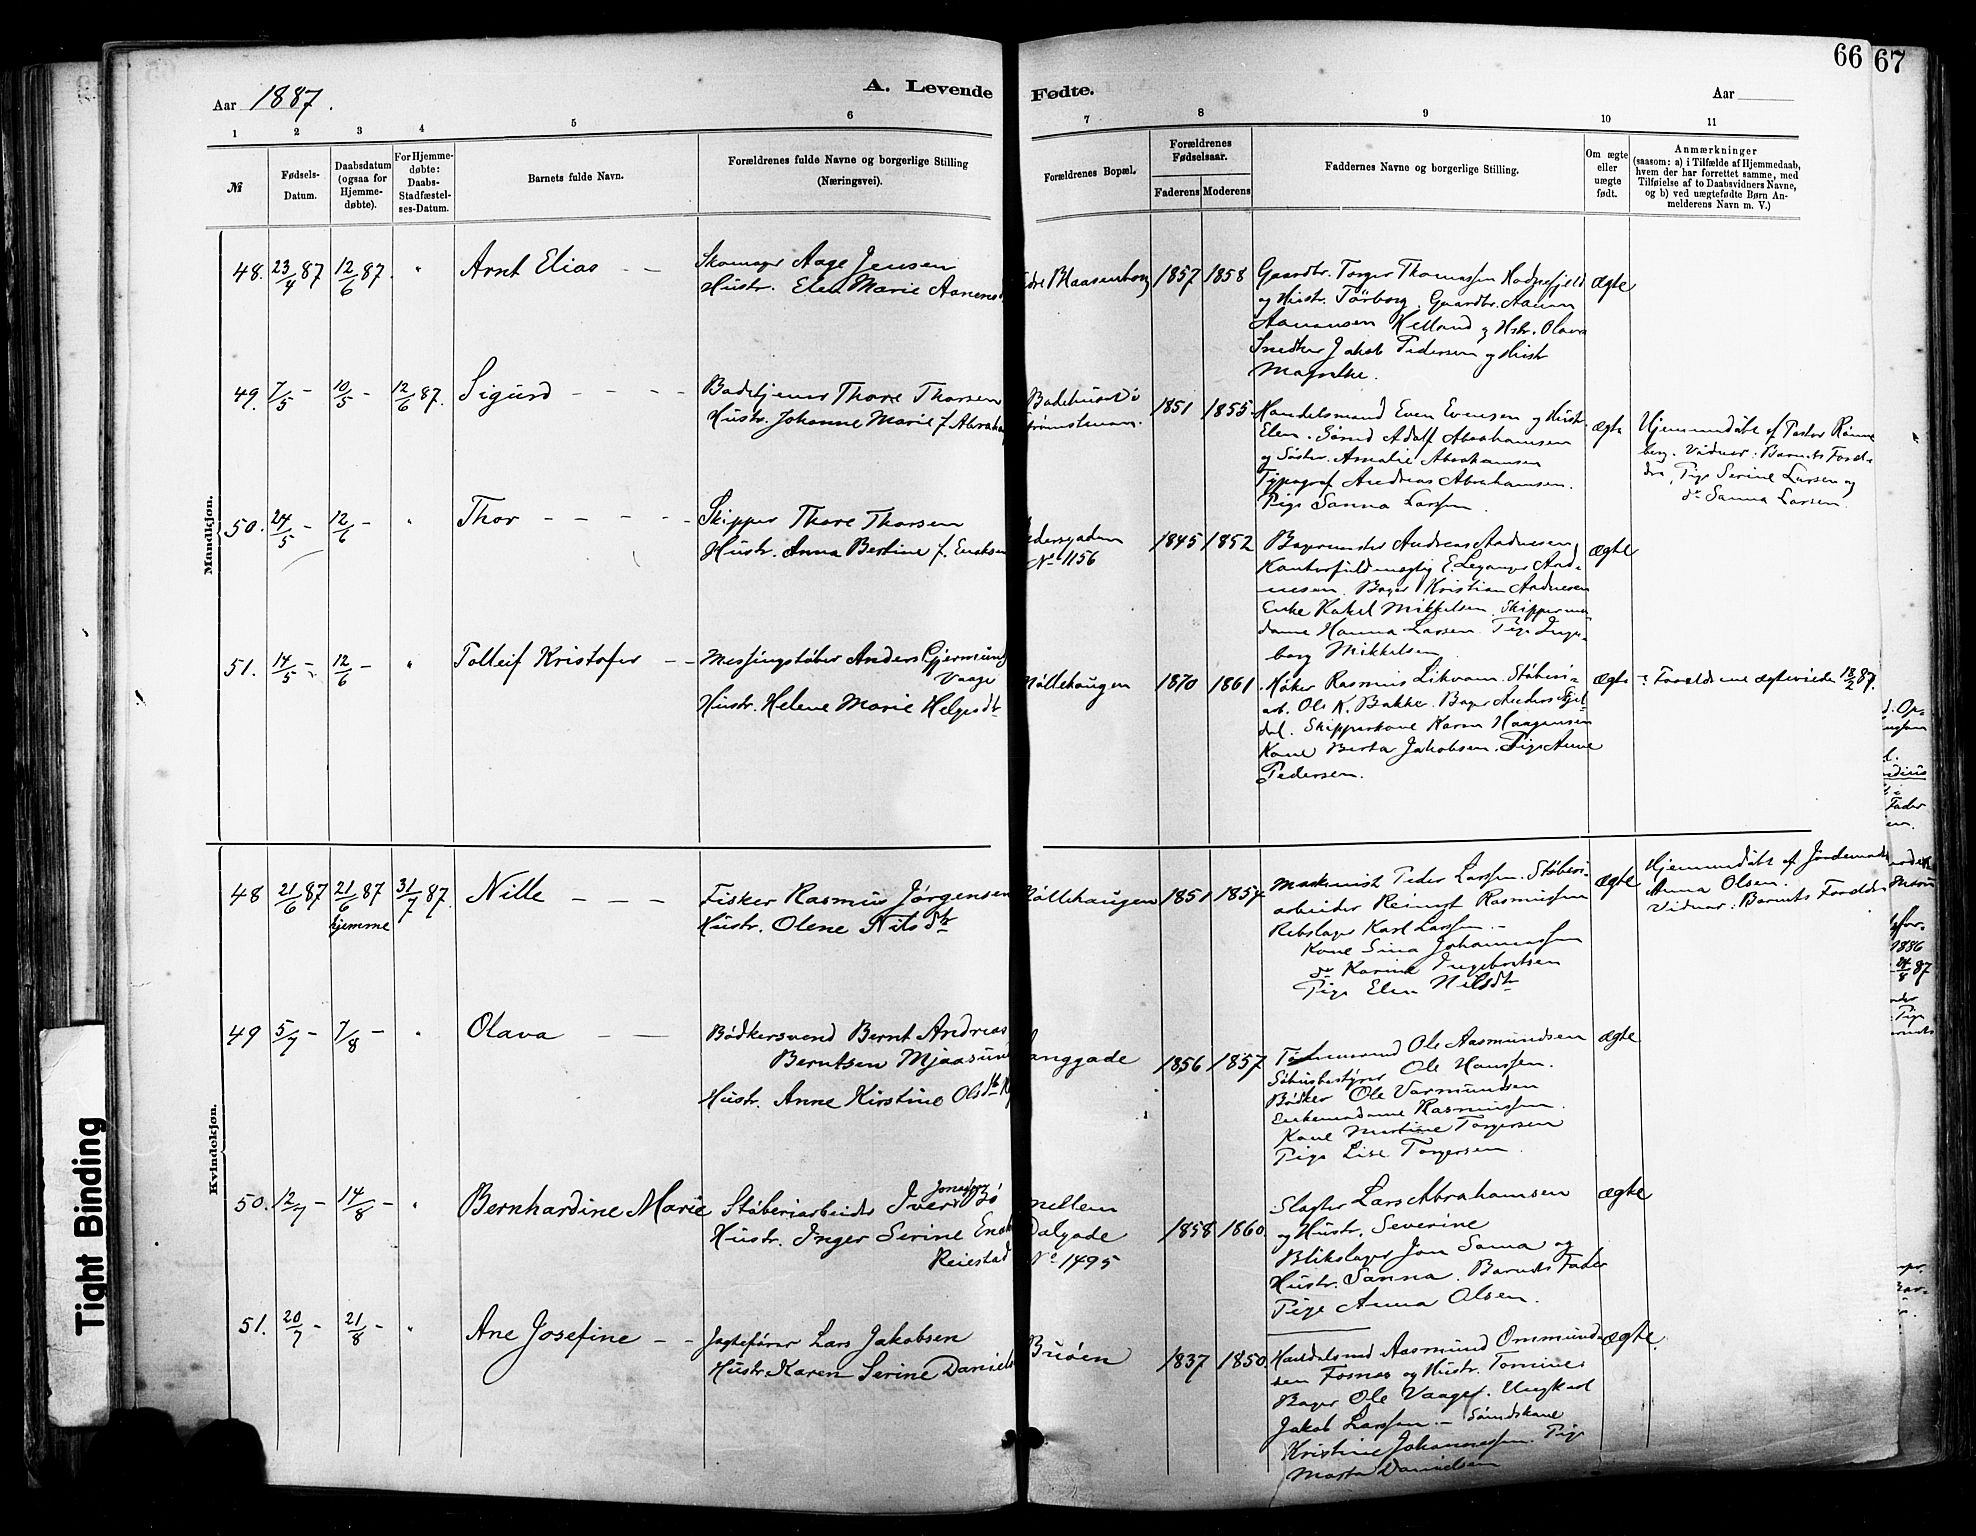 66 67
Aar 1887.
A. Levende Fødte.
Aar
1 2 3 4 5 6 7 8 9 10 11
№
Fødsels-Datum.
Daabsdatum (ogsaa for Hjemmedøbte).
For Hjemmedøbte: Daabs-Stadfæstelses-Datum.
Barnets fulde Navn.
Forældrenes fulde Navne og borgerlige Stilling
(Næringsvei).
Forældrenes Bopæl.
Forældrenes Fødselsaar.
Faderens Moderens
Faddernes Navne og borgerlige Stilling.
Om ægte eller uægte født.
Anmærkninger
(saasom: a) i Tilfælde af Hjemmedaab,
hvem der har forrettet samme, med
Tilføielse af to Daabsvidners Navne,
og b) ved uægtefødte Børn Anmelderens Navn m. V.)
Mandkjøn.
48. 23/4 87 12/6 87. " Arnt Elias
Skomager Aage Jensen
Hustr. Elen Marie Aanens
1857 1858
Gaardbr. Torger Thomassen
og Hustr. Tørborg. Gaardbr. Aanen
Aanensen Helland og Hstr. Olava
Snedker Jakob Pedersen og Hustr
ægte
49. 7/5 - 10/5 - 12/6 87. Sigurd
Badetjener Thore Thorsen
Hustr. Johanne Marie f. Abraha
Badehuset i
Strømstenen.
1851 1855
Handelsmand Even Evensen og Hustr
Elen. Sømd Adolf Abrahamsen
og Søster Amalie Abrahamsen
Typograf Andreas Abrahamsen.
Pige Sanna Larsen.
ægte
Hjemmedøbt af Pastor Rønneberg. Vidner: Barnets Forældre, Pige Serine Larsen og
do Sanna Larsen.
50. 24/5 - 12/6 - " Thor
Skipper Thore Thorsen
Hustr. Anna Bertine f. Eriksen
Pedersgaden
No 1156
1845 1852
Bagermester Andreas Andresen
Kontorfuldmægtig E. Leganger Andresen. Bager Kristian Andresen
Enke Rakel Mikkelsen. Skippermadame Hanna Larsen. Pige Ingeborg Mikkelsen
ægte
51. 14/5 - 12/6 - " Tolleif Kristofer
Messingstøber Anders Gjermund
Vaage
Hustr. Helene Marie Helgesdtr
Møllehaugen
1870 1861
Høker Rasmus Likvam. Støberiarb. Ole K. Bakke. Bager Anders
Skipperkone Karen Haagensen
Kone Berta Jakobsen. Pige Anne
Pedersen.
ægte
: Forældrene ægteviede 18/2 87.
Kvindekjøn.
48 21/6 87 21/6 87 hjemme 31/7 87. Nille
Fisker Rasmus Jørgensen
Hustr. Olene Nilsdtr
Møllehaugen
1851 1854
Maskinist Peder Larsen. Støberiarbeider Reinert Rasmussen
Rebslager Karl Larsen
Kone Sina Johannessen
do Karine Ingebretsen
Pige Elen Nilsdtr
ægte
Hjemmedøbt af Jordemoder
Anna Olsen.
Vidner: Barnets Forældre
49 5/7 - 7/8 - " Olava
Bødkersvend Bernt Andreas
Berntsen Mjaasund
Hustr. Anne Kirstine Olsdtr
Langgade
1856 1857
Tømmermand Ole Aasmundsen
Ole Hanssen.
Bødker Ole Varmundsen
Enkemadame Rasmussen.
Kone Martine Torgersen
Pige Lise Torgersen.
ægte
50. 12/7 - 14/8 - " Bernhardine Marie
Støberiarbeider Iver Jonassen Bø
Hustr. Inger Serine
Reiestad
mellem
Dalgade
No 1495
1858 1860.
Slagter Lars Abrahamsen
og Hustr. Severine
Blikslager Jon Sanna og
Hustr. Sanna. Barnets Fader
Pige Anna Olsen.
ægte
51. 20/7 - 21/8 - " Ane Josefine
Jagtefører Lars Jakobsen
Hustr. Karen Serine Daniels
Buøen
1837 1850.
Handelsmd Aasmund Ommundsen Fosnes og Hustr. Tomine
Bager Ole Vaage. Ungkarl
Jakob Larssen. Sømdskone
Kristine Johannessen. Pige
Marta Danielsen
ægte.
Tight Binding